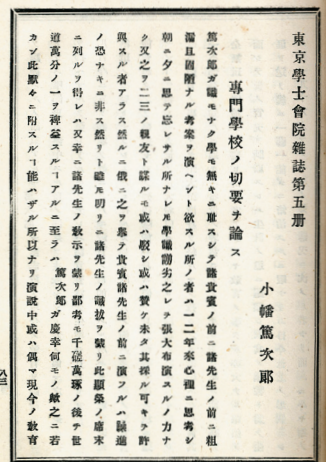 東京學士會院雜誌第五册
專門學校ノ切要ヲ論ス
小幡篤次郎
篤次郎ガ識モナク學モ無キニ耻スシテ諸貴賓ノ前ニ諸先生ノ前ニ粗
漏且固陋ナル考案ヲ演ヘント欲スル所ノ者ハ一二年來心裡ニ思考シ
朝ニ夕ニ思テ忘レサル所ナレ𪜈學識謭劣之レヲ張大布演スルノ力ナ
ク又之ヲ二三ノ親友ト謀ルモ或ハ駁シ或ハ賛ケ未タ其採ル可キヲ許
與スル者アラス然ルニ俄ニ之ヲ擧テ貴賓諸先生ノ前ニ演フルハ
ノ恐ナキニ非ス然リト雖𪜈明リニ諸先生ノ識拔ヲ蒙リ此顯榮ノ席末
ニ列ルヲ得レハ又幸ニ諸先生ノ敎示ヲ蒙リ鄙考モ千磋萬琢ノ後テ世
道萬分ノ一ヲ裨益スルーアルニ至ラハ 篤次郎ガ慶幸何モノカ之ニ若
カン此默々ニ附スルー能ハザル所以ナリ演説中或ハ偶マ現今ノ敎育
八三